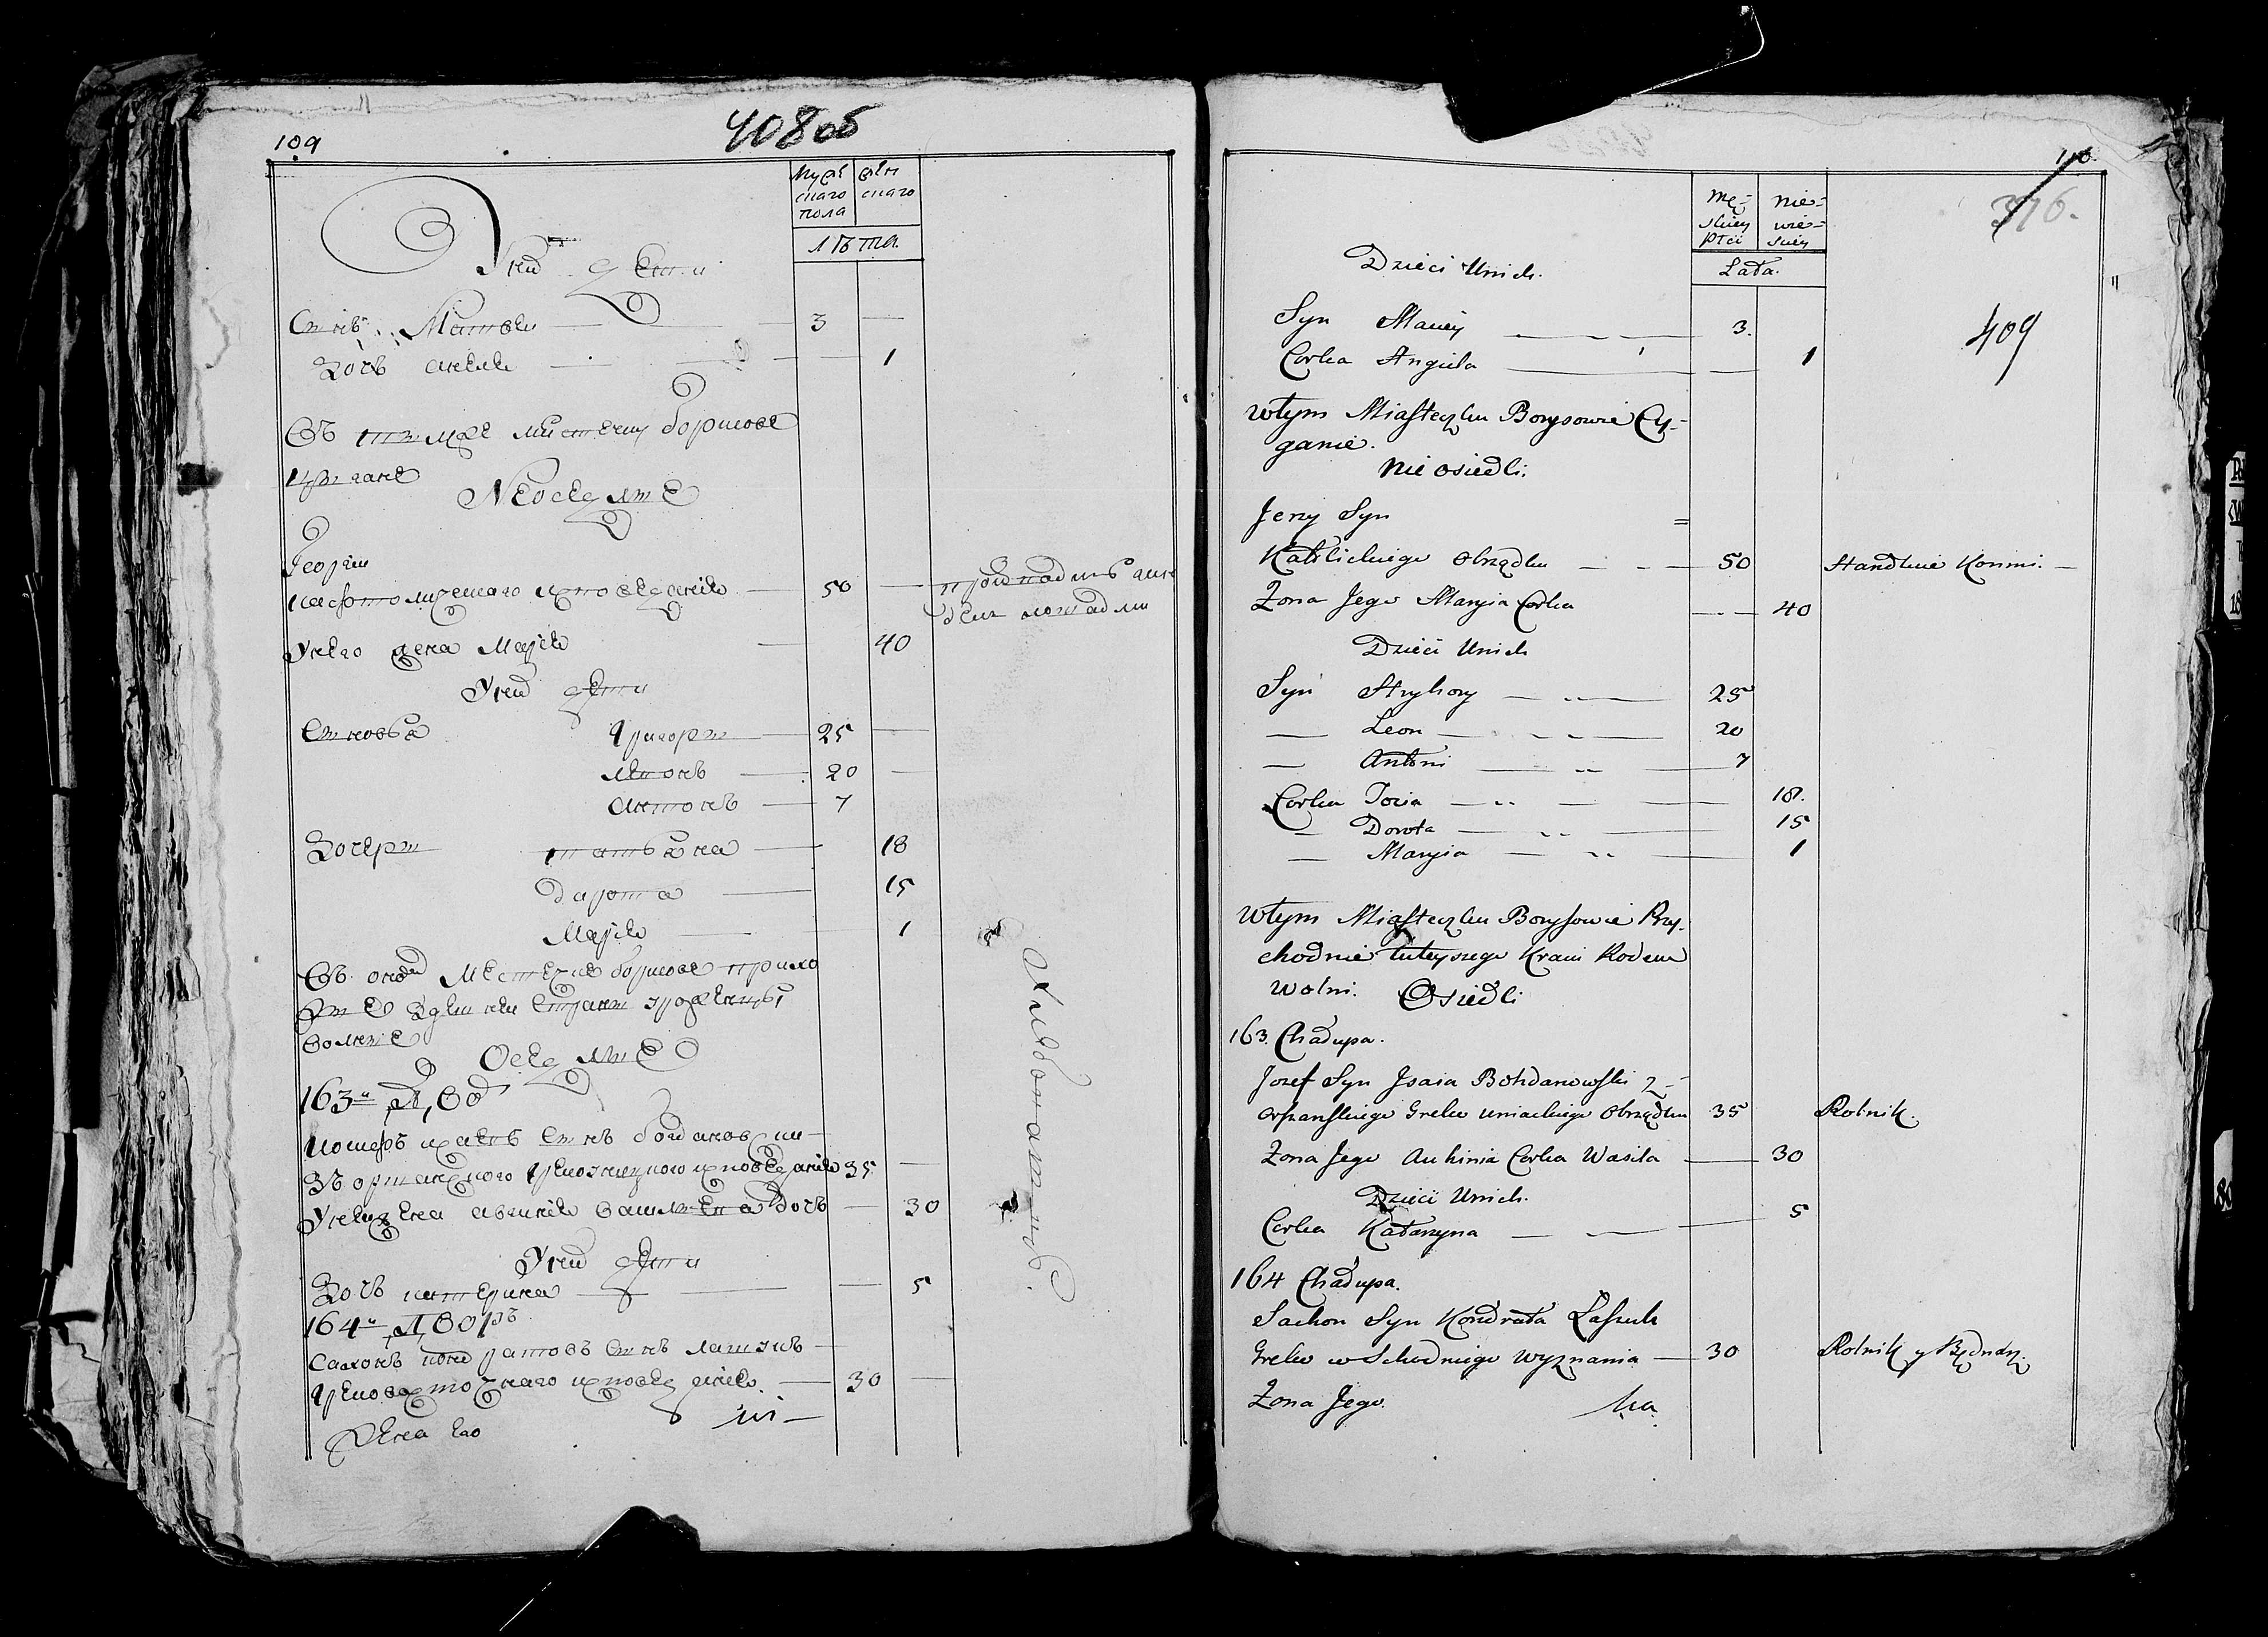 109
408 об
Мужескаго пола
женскаго
лѣта
У нихъ дѣти
Сынъ Матвей 3
Дочь Анеля 1
Въ томже местечку борисове
цыгане
Неоседлые
Георгий
католического исповеданія 50
У него жена Марія 40
У нихъ дети
Сыновья Григоры 25
Леонъ 20
Антонъ 7
Дочеры татьяна 18
дарота 15
Марія 1
Въ ономъ Местечке борисове прихо
жые здешней страны урожденцы
волные
Оседлые
163й двор
Иосифъ исаевъ сынъ богданович
исповеданія 35
дочь 30
У нихъ дети
Дочь катерина 5
164й дворъ
Салхонъ кондратовъ сынъ лашукъ
греко восточнаго исповеданія 30
Жена его
110
376.
409
Męskiey Płci
Niewieściey
Lata.
Dzieci Unich.
Syn Maciey 3.
Corka Angiela 1
Wtym Miasteczku Borysowie Cy-
ganie.
Nie osiedli.
Jerzy Syn
Katolickiego Obrządku 50 Handluie Konmi.
Zona Jego Maryia Corka 40
Dzieci Unich
Syn Hryhory 25
Leon 20
Antoni 7
Corka Tocia 18.
Dorota 15
Maryia 1
Wtym Miasteczku Borysowie Przy-
chodnie tuteyszego Kraiu Rodem
Wolni. Osiedli
163. Chałupa.
Jozef Syn Jsaia Bohdanowski z-
orszanskiego Greko uniackiego Obrządku 35 Rolnik.
Zona Jego Auhinia Corka Wasila 30
Dzieci Unich.
Corka Katarzyna 5
164 Chałupa.
Sachon Syn Kondrata Łaszuk
Greko wschodniego wyznania 30 Rolnik y Bednarz.
Zona Jego. Ka